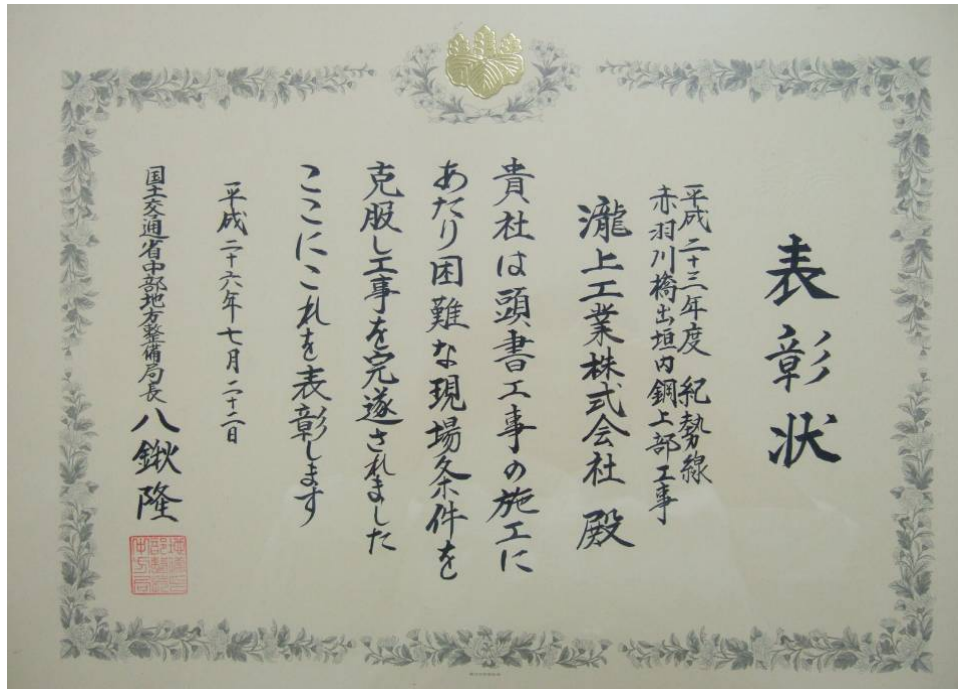 表彰状
平成二十三年度 紀勢線
赤羽川橋出垣内鋼上部工事
瀧上工業株式会社 殿
貴社は頭書工事の施工に
あたり困難な現場条件を
克服し工事を完遂されました
ここにこれを表彰します
平成二十六年七月二十二日
国土交通省中部地方整備局長 八鍬 隆